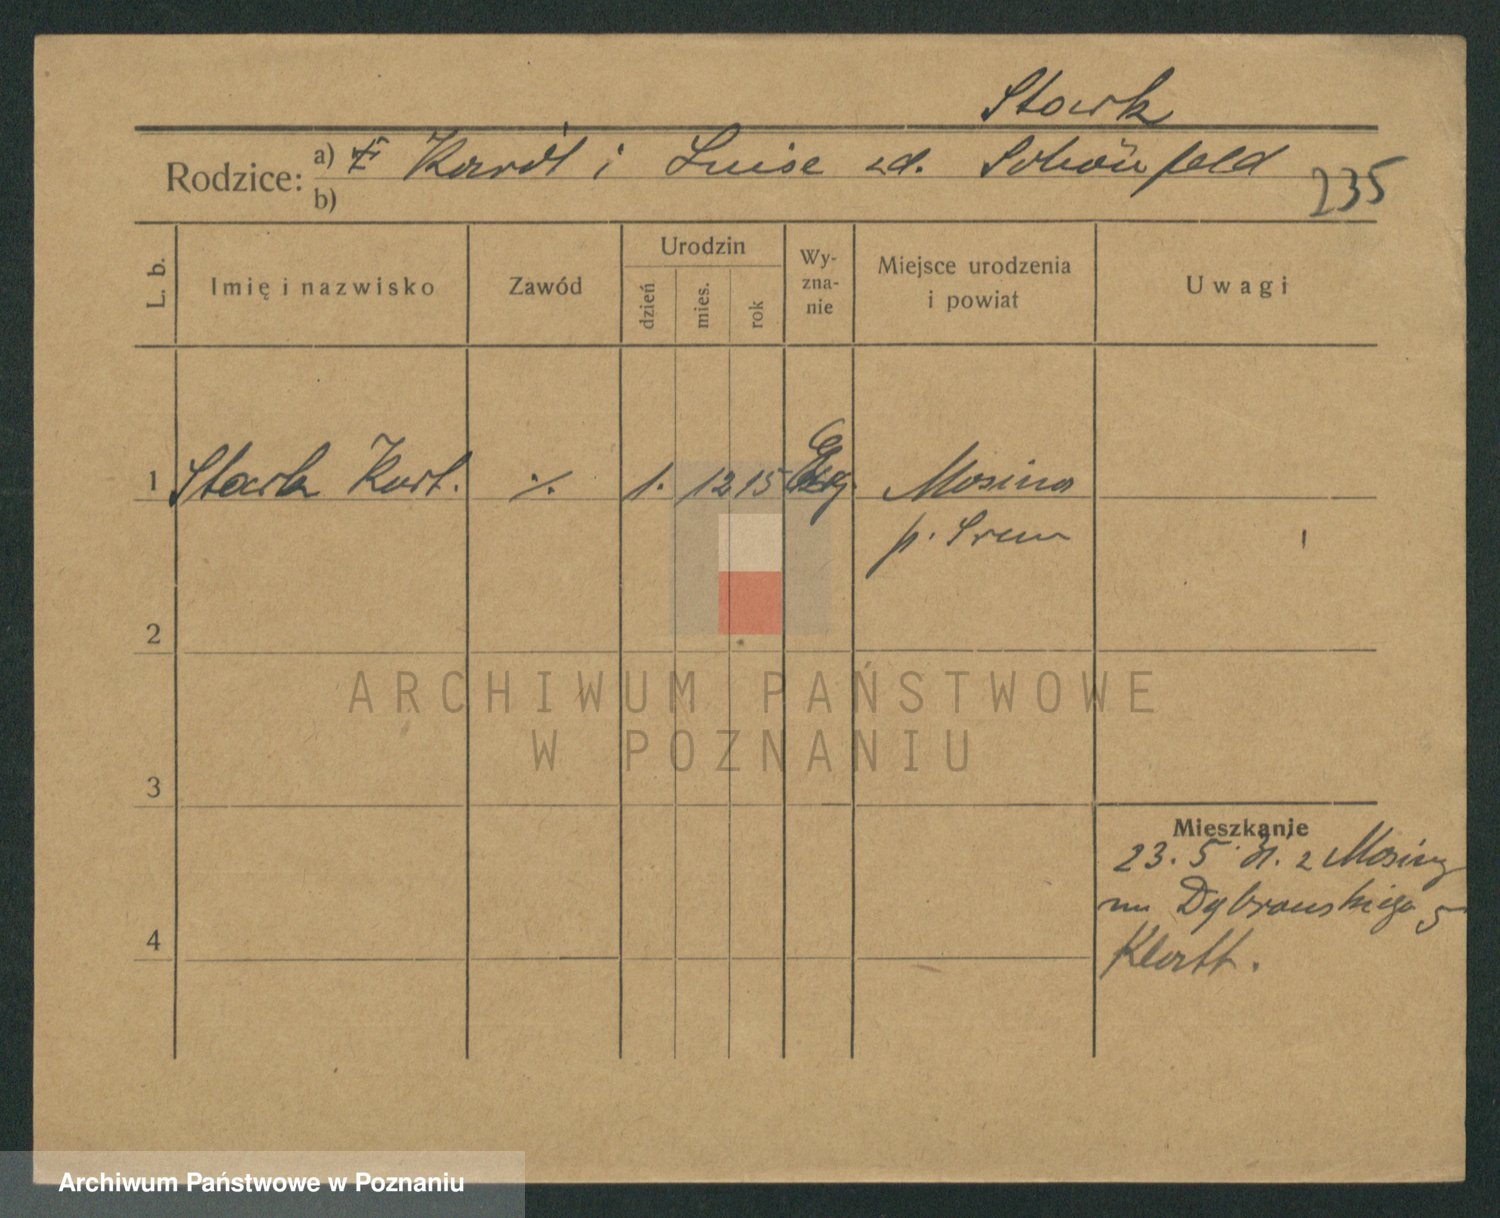 Stark
Rodzice: a) Karól i Luise zd. Schönfeld
b)
235
L. b.
Imię i nazwisko
Zawód
Urodzin
dzień
mies.
rok
Wy-
zna-
nie
Miejsce urodzenia
i powiat
Uwagi
1 Stark Kurt. ·/. 1. 12 15 Ewg. Mosina
p. Śrem
2
3
4
Mieszkanie
23. 5. z Mosiny
Dąbrowskiego 5
Klatt.
ARCHIWUM PAŃSTWOWE
W POZNANIU
Archiwum Państwowe w Poznaniu